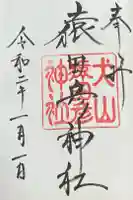 奉拝
猿田彦神社
犬山
猿田彦
神社
令和二年一月一日